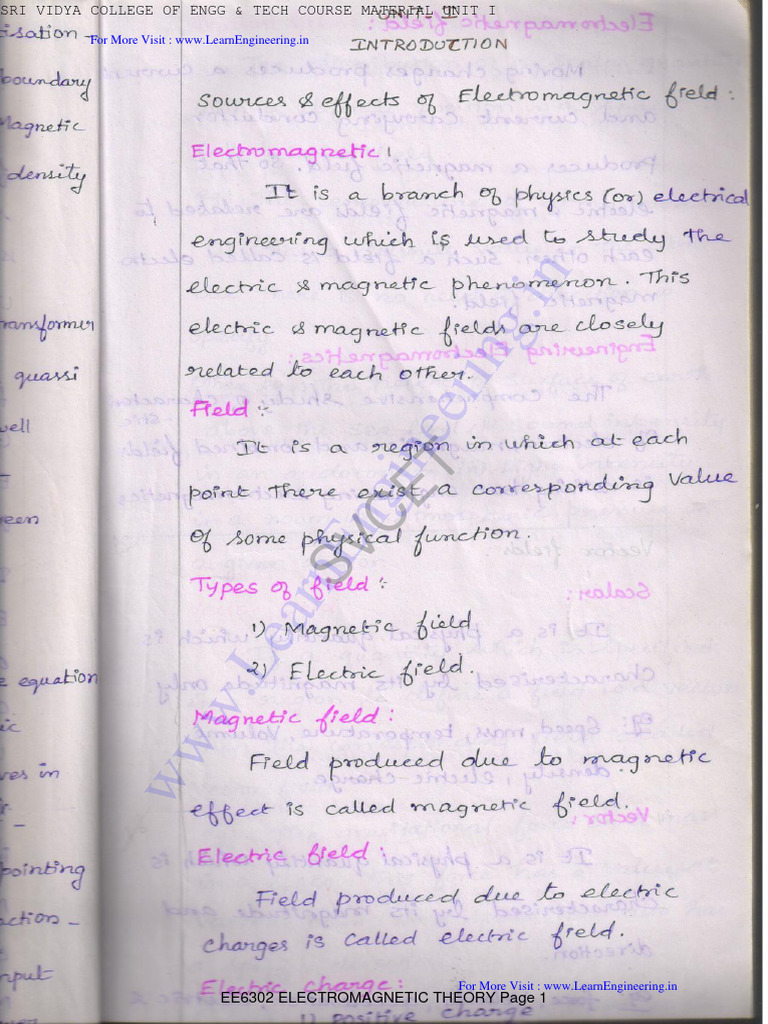 SRI VIDYA COLLEGE OF ENGG & TECH COURSE MATERIAL UNIT I
UNIT-I
For More Visit : www.LearnEngineering.in
INTRODUCTION
Sources & effects of Electromagnetic field :
Electromagnetic :
It is a branch of physics (or) electrical
engineering which is used to study the
electric & magnetic phenomenon. This
electric & magnetic fields are closely
related to each other.
Field :-
It is a region in which at each
point there exist a corresponding value
of some physical function.
Types of field :
1) Magnetic field
2) Electric field.
Magnetic field :
Field produced due to magnetic
effect is called magnetic field.
Electric field :
Field produced due to electric
charges is called electric field.
Electric charge :
1) positive charge
For More Visit : www.LearnEngineering.in
EE6302 ELECTROMAGNETIC THEORY Page 1
www.LearnEngineering.in
SVCET
isation -
boundary
Magnetic
density
ransformer
quassi
well
een
equation
ic
ves in
pointing
action -
nput